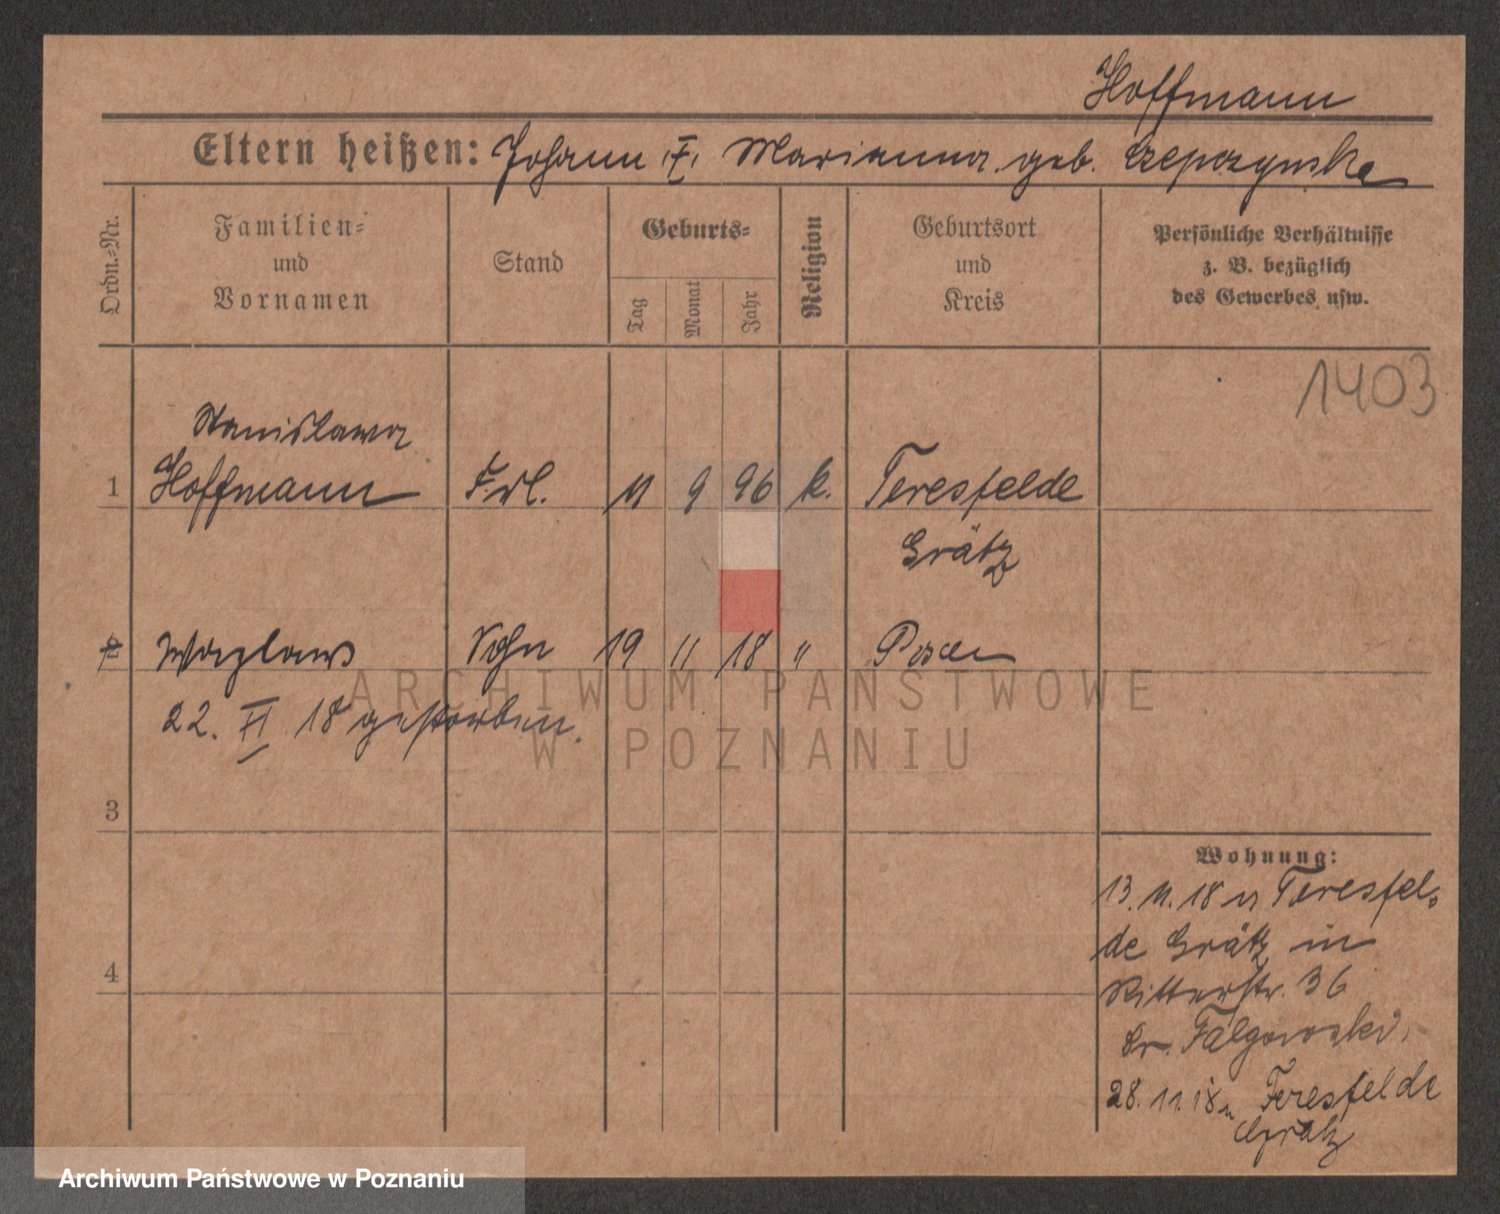 Hoffmann
Eltern heißen: Johann, F, Marianna geb. Czepczynska
Ordn.-Nr.
Familien- und Vornamen
Stand
Geburts-
Tag
Monat
Jahr
Religion
Geburtsort und Kreis
Persönliche Verhältnisse
z. B. bezüglich
des Gewerbes usw.
1403
Stanislawa
1 Hoffmann Frl. 11 9 96 k. Teresfelde
Grätz
2 Wazlaw Sohn 19 11 18 " Posen
22. XI 18 gestorben.
3
4
Wohnung:
13. 11. 18 v Teresfel-
de Grätz in
Ritterstr. 36
br. Falgowski.
28. 11. 18 n Teresfelde
Grätz
ARCHIWUM PAŃSTWOWE
W POZNANIU
Archiwum Państwowe w Poznaniu